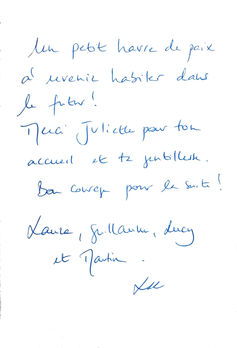 Un petit havre de paix
à revenir habiter dans
le futur !
Merci Juliette pour ton
accueil et ta gentillesse.
Bon courage pour la suite !
Laura, Guillaume, Lucy
et Martin.